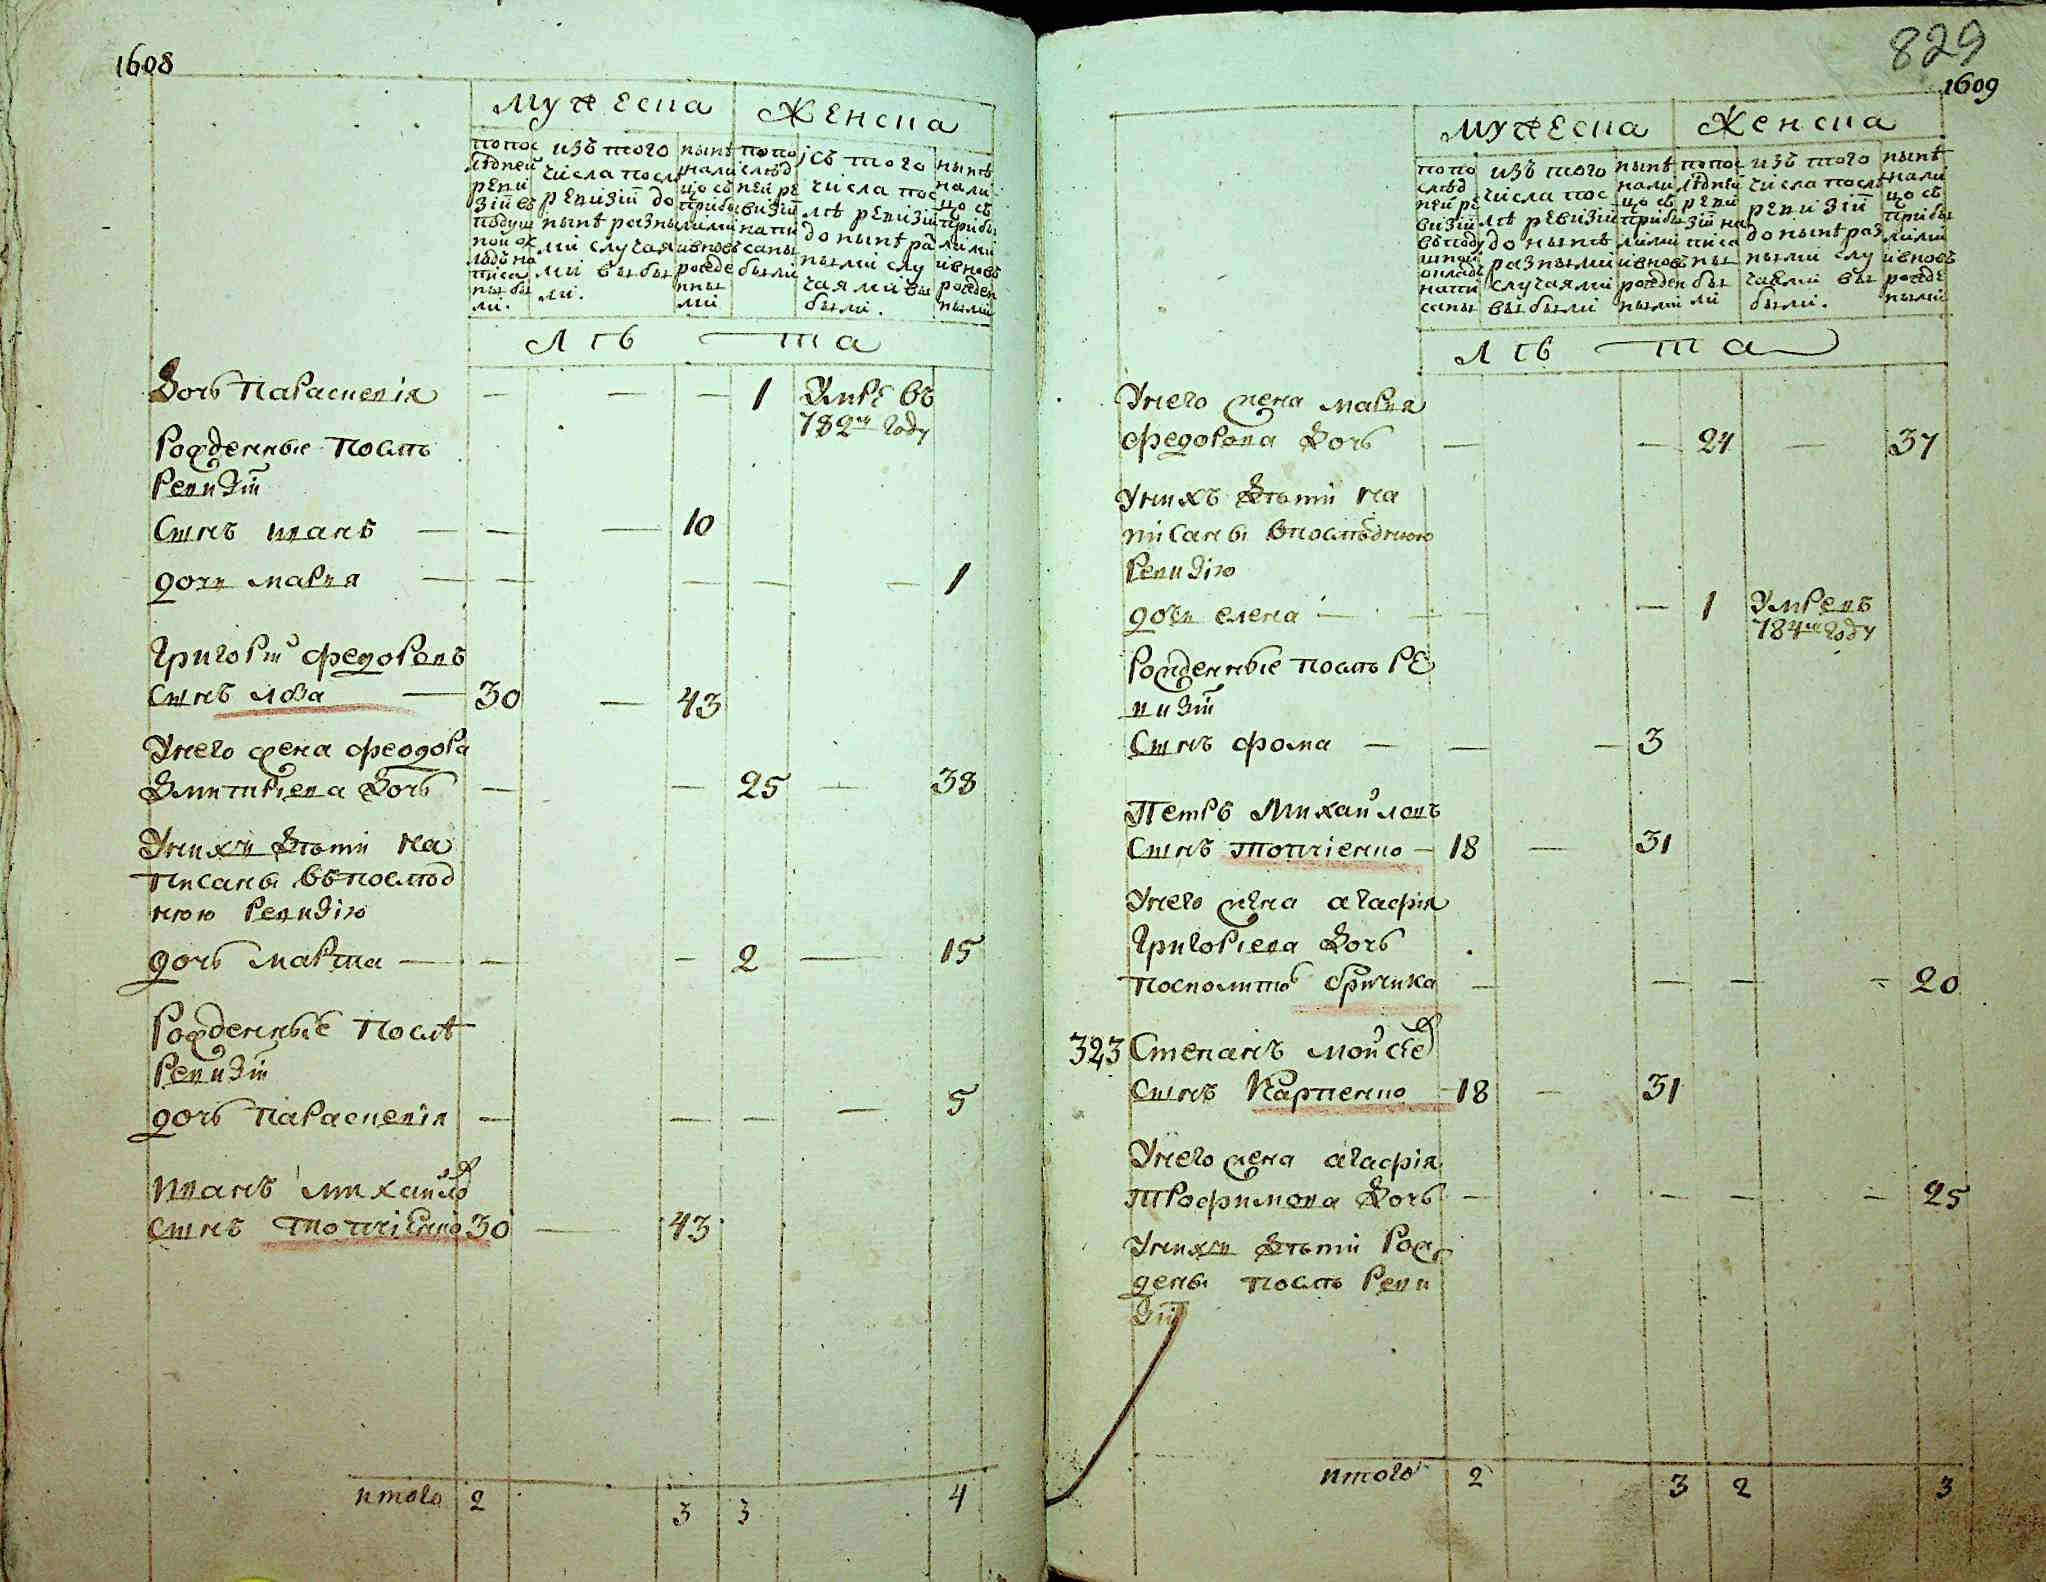 1608
Мужеска Женска
попос
лѣдней
реви
зіи въ
подуш
ной ок
ладъ на
писа
ны бы
ли.
изъ того
числа послѣ
ревизіи до
нынѣ разны
ми случая
ми выбы
ли.
нынѣ
нали
цо съ
прибы
лыми
ивновь
рожде
нны
ми
попо
слѣд
ней ре
визіи
напи
саны
были
изъ того
числа пос
лѣ ревизіи
до нынѣ ра
ными слу
чаями вы
были.
нынѣ
нали
цо съ
прибы
лыми
ивновь
рожден
ными
Лѣ — та
Дочь Параскевія — — — 1 Умре въ
782м году
Рожденные послѣ
Ревизіи
Сынъ иванъ — — — 10
дочи марія — — — — — 1
Григорій федоровъ
Сынъ — 30 — 43
Унего жена феодора
Дмитріева Дочь — — 25 — 38
Унихъ Дѣти на
писаны въпослѣд
нюю Ревизію
дочь марта — — — 2 — 15
Рожденные Послѣ
Ревизіи
дочь Параскевія — — — — 5
Иванъ михайло
Сынъ топчіенко 30 — 43
итого 2 3 3 4
829
1609
Мужеска Женска
попо
слѣд
ней ре
визіи
въподу
шной
окладъ
напи
саны
изъ того
числа пос
лѣ ревизіи
до нынѣ
разными
случаями
выбыли
нынѣ
нали
цо съ
прибы
лыми
ивновь
рожден
ными
попос
лѣдней
реви
зіи на
писа
ны
бы
ли
изъ того
числа послѣ
ревизіи
до нынѣ раз
ными слу
чаями вы
были.
нынѣ
нали
цо съ
прибы
лыми
ивновь
рожде
ными
Лѣ — та
Унего жена марія
федорова Дочь — — 24 — 37
Унихъ Дѣти на
писаны впослѣднюю
Ревизію
дочи елена — — — — 1 Умре въ
784м году
Рожденные послѣ Ре
визіи
Сынъ фома — — — 3
Петръ Михайловъ
Сынъ топчіенко — 18 — 31
Унего жена агафія
Григоріева Дочь
посполитъ — — — — 20
323 Степанъ мойсее
Сынъ Карпенко — 18 — 31
Унего жена агафія
Трофимова Дочь — — — — 25
Унихъ Дѣти Рож
дены послѣ Реви
зіи
итого 2 3 2 3